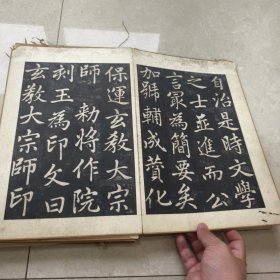 自治是時文學
之士並進而公
言最為簡要矣
加號輔成贊化
保運玄教大宗
師勑將作院
刻玉為印文曰
玄教大宗師印